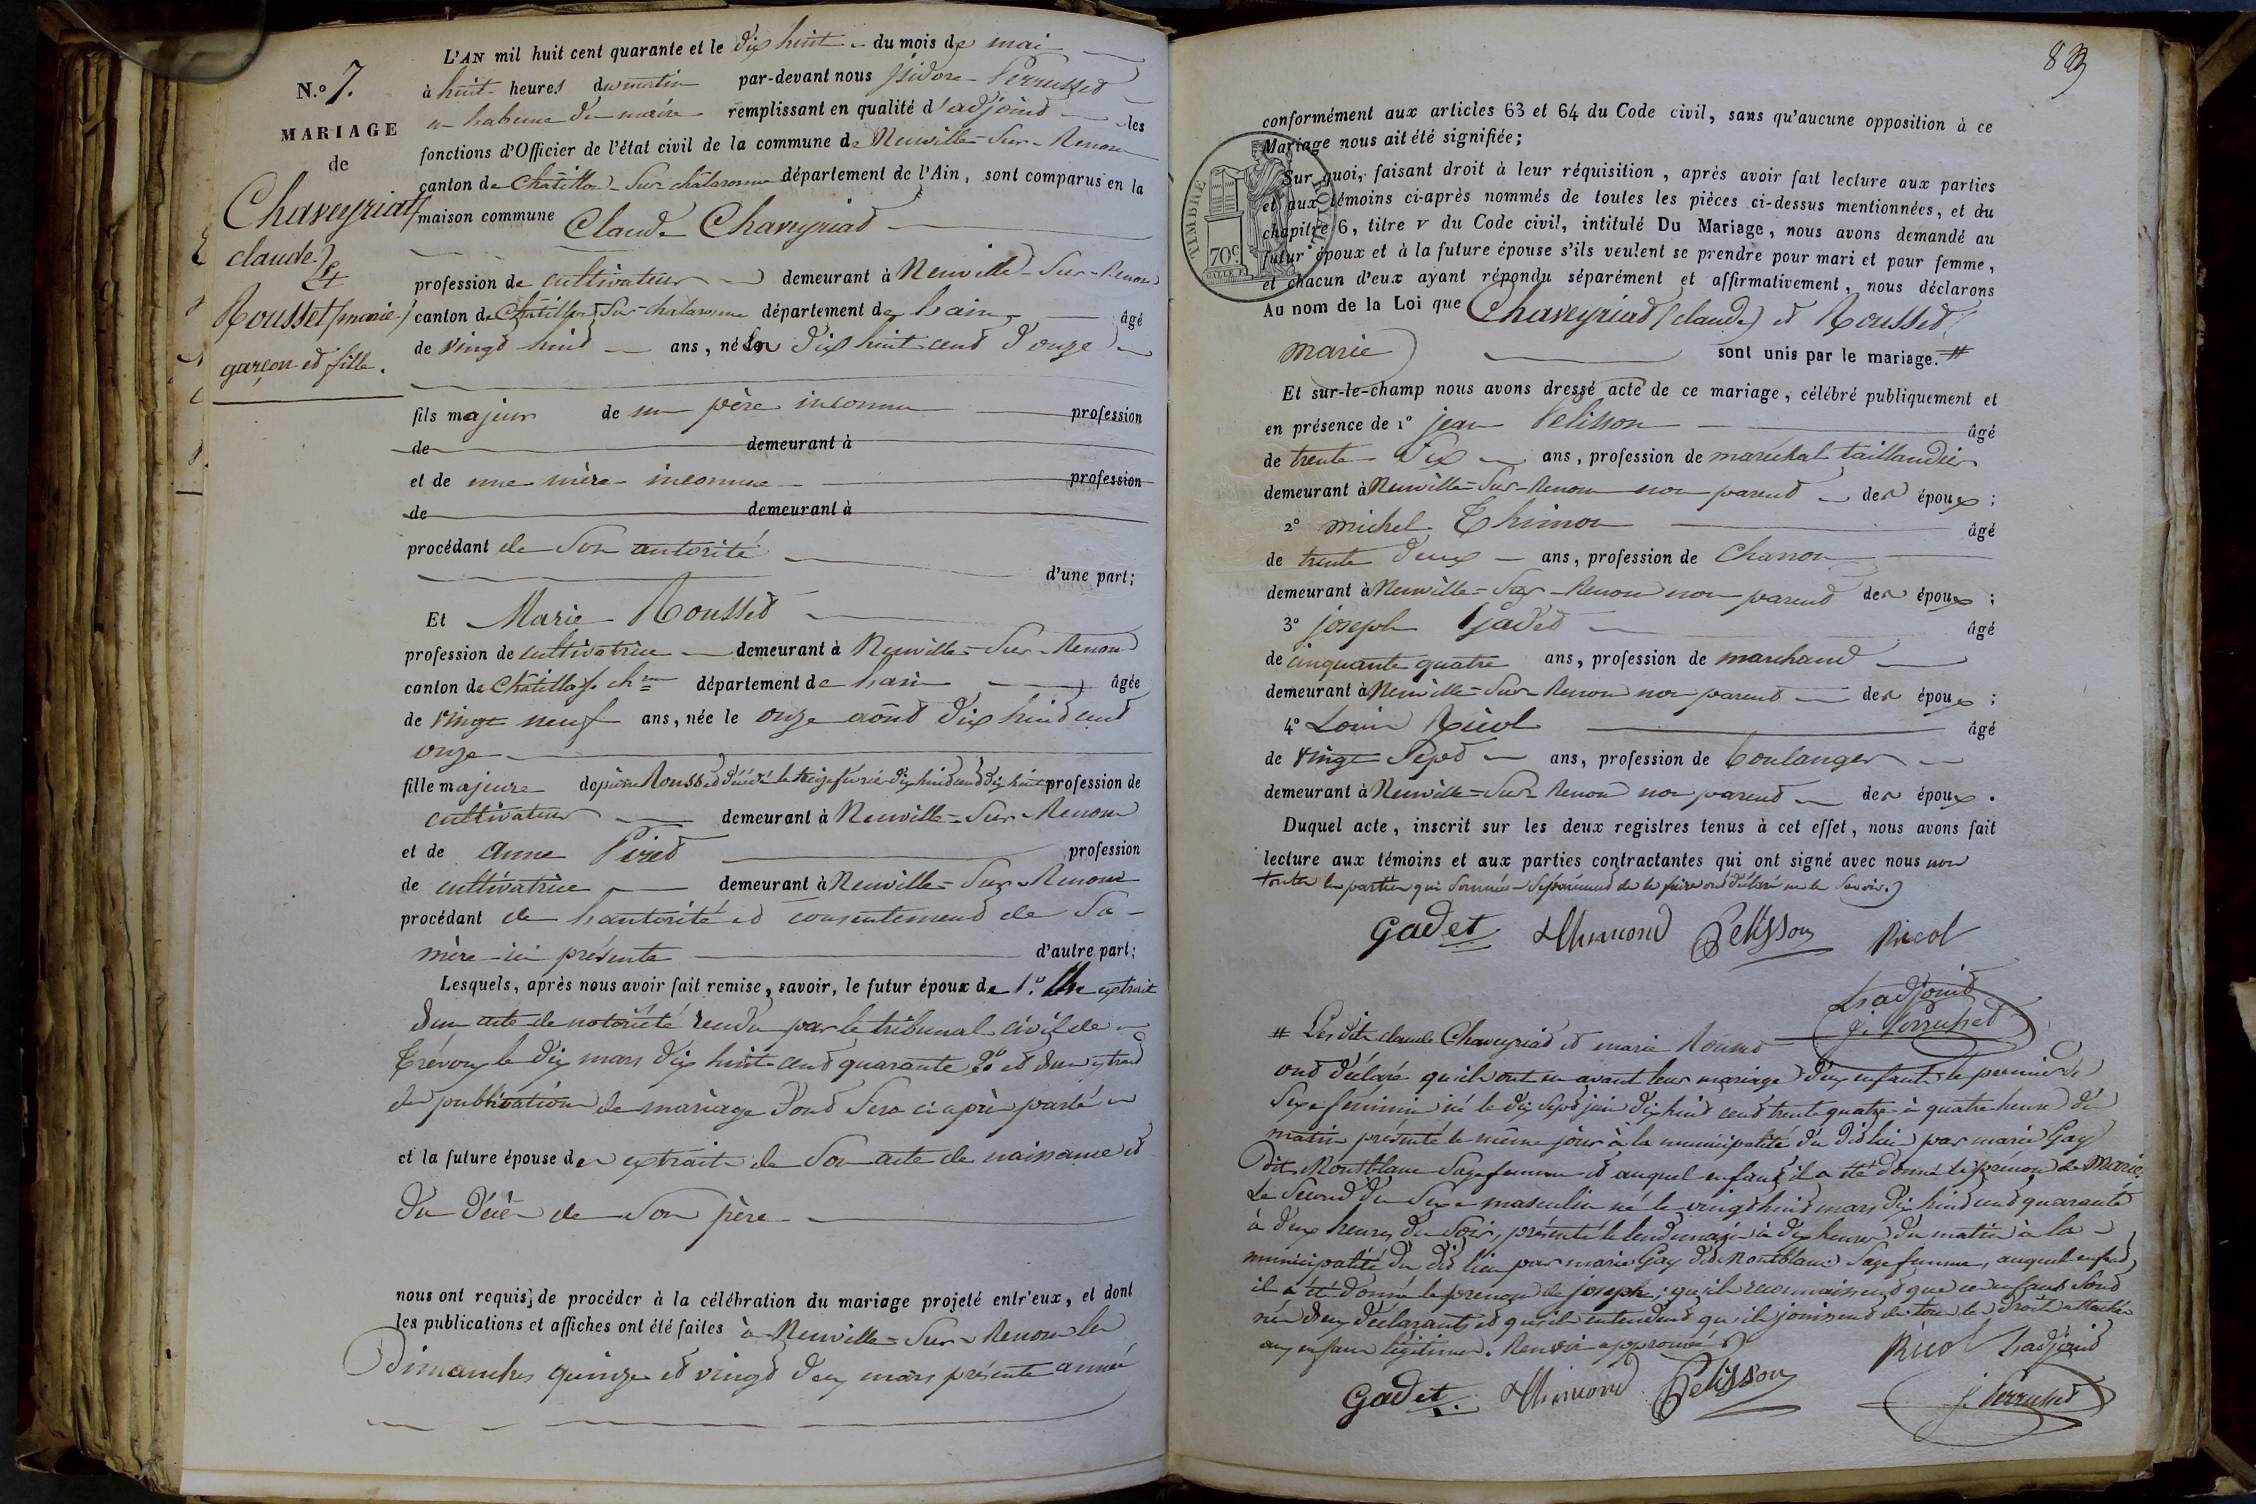 N.o 7.
MARIAGE
de
Chaveyriat
claude)
et
Rousset (marie)
garçon et fille.
L'AN mil huit cent quarante et le dix huit du mois de mai
à huit heures du matin par-devant nous Isidore Perrusset
en du maire remplissant en qualité d'adjoint les
fonctions d'Officier de l'état civil de la commune de Neuville-Sur-Renom
canton de Chatillon-Sur-chalaronne département de l'Ain, sont comparus en la
maison commune Claude Chaveyriat
profession de cultivateur demeurant à Neuville-Sur-Renom
canton de Chatillon Sur-chalaronne département de Lain âgé
de vingt huit ans, né en dix huit cent d'onze
fils majeur de un père inconnu profession
de demeurant à
et de une mère inconnue profession
de demeurant à
procédant de Son autorité
d'une part;
Et Marie Rousset
profession de cultivatrice demeurant à Neuville-Sur-Renom
canton de Châtillon s. ch.ne département de Lain âgée
de vingt neuf ans, née le onze août dix huit cent
onze
fille majeure de pierre Rousset décédé le treize février dix huit cent dix huit profession de
cultivateur demeurant à Neuville-Sur-Renom
et de anne Piret profession
de cultivatrice demeurant à Neuville-Sur-Renom
procédant de Lautorité et consentement de Sa
mère ici présente d'autre part;
Lesquels, après nous avoir fait remise, savoir, le futur époux de 1.o Un extrait
d'un acte de notoriété rendu par le tribunal civil de
Trévoux le dix mars dix huit cent quarante 2o et d'un extrait
de publication de mariage dont Sera ci après parlé
et la future épouse des extraits de Son acte de naissance et
du décès de Son père
nous ont requis de procéder à la célébration du mariage projeté entr'eux, et dont
les publications et affiches ont été faites à Neuville-Sur-Renom les
Dimanches quinze et vingt deux mars présente année
83
TIMBRE ROYAL
70c
conformément aux articles 63 et 64 du Code civil, sans qu'aucune opposition à ce
Mariage nous ait été signifiée;
Sur quoi, faisant droit à leur réquisition, après avoir fait lecture aux parties
et aux témoins ci-après nommés de toutes les pièces ci-dessus mentionnées, et du
chapitre 6, titre v du Code civil, intitulé Du Mariage, nous avons demandé au
futur époux et à la future épouse s'ils veulent se prendre pour mari et pour femme,
et chacun d'eux ayant répondu séparément et affirmativement, nous déclarons
Au nom de la Loi que Chaveyriat (claude) et Rousset (
marie) sont unis par le mariage. #
Et sur-le-champ nous avons dressé acte de ce mariage, célébré publiquement et
en présence de 1o jean Pelisson âgé
de trente Six ans, profession de maréchal taillandier
demeurant à Neuville-Sur-Renom non parent des époux;
2o michel Thimon âgé
de trente deux ans, profession de Charron
demeurant à Neuville-Sur-Renom non parent des époux;
3o joseph Gadet âgé
de cinquante quatre ans, profession de marchand
demeurant à Neuville-Sur-Renom non parent des époux;
4o Louis Ricol âgé
de vingt Sept ans, profession de boulanger
demeurant à Neuville-Sur-Renom non parent des époux.
Duquel acte, inscrit sur les deux registres tenus à cet effet, nous avons fait
lecture aux témoins et aux parties contractantes qui ont signé avec nous non
toutes les parties qui Sommées Séparément de le faire ont déclaré ne le Savoir.
Gadet Thimond Pelisson Ricol
Ladjoint
J. Perrusset
# Lesdits claude Chaveyriat et marie Rousset
ont déclaré qu'ils ont eu avant leur mariage deux enfants le premier du
Sexe féminin né le dix Sept juin dix huit cent trente quatre à quatre heures du
matin présenté le même jour à la municipalité du dit lieu par marie Gay
dit Montblanc Sage femme et auquel enfant il a été donné le prénom de Marie.
Le Second du Sexe masculin né le vingt huit mars dix huit cent quarante
à deux heures du Soir, présenté le lendemain à dix heures du matin à la
municipalité du dit lieu par marie Gay dit Montblanc Sage femme, auquel enfant
il a été donné le prénom de joseph; qu'ils reconnaissent que ces enfants Sont
nés d'eux déclarants et qu'ils entendent qu'ils jouissent de tous les droits attachés
aux enfans légitimes. Renvoi approuvé
Gadet Thimond Pelisson Ricol Ladjoint
J. Perrusset